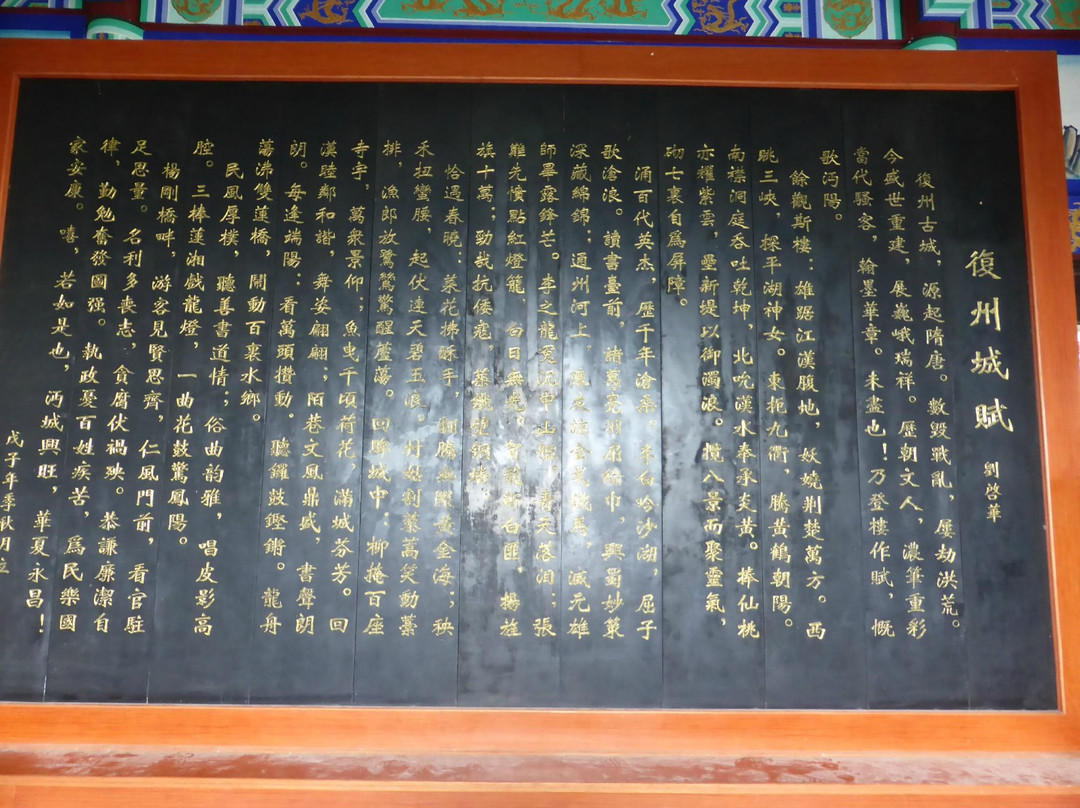 復州城賦
劉啓華
復州古城，源起隋唐。數毀戰亂，屢劫洪荒。
今盛世重建，展巍峨瑞祥。歷朝文人，濃筆重彩
當代騷客，翰墨華章。未盡也！乃登樓作賦，慨
歌沔陽。
餘觀斯樓：雄踞江漢腹地，妖嬈荆楚萬方。西
眺三峽，探平湖神女。東扼九衢，騰黃鶴朝陽。
南襟洞庭吞吐乾坤，北吮漢水奉承炎黃。捧仙桃
亦耀紫雲，壘新堤以御濁浪。攬八景而聚靈氣，
砌七裏自爲屏障。
涌百代英杰，歷千年滄桑。李白吟沙湖，屈子
歌滄浪。讀書臺前，諸葛亮綸巾，興蜀妙策
深藏綿錦；通州河上，滅元雄
師畢露鋒芒。李之龍；張
難先憤點紅燈籠，白日無，揚旌
旗十萬；勁哉抗倭寇，
恰遇春曉：菜花拂酥手，黃金海；秧
禾扭蠻腰，起伏連天碧玉浪。村姑割菜萬笑動藁
排，漁郎放鷺鷥驚醒蘆蕩。回眸城中：柳掩百座
寺宇，萬衆景仰；魚曳千頃荷花，滿城芬芳。回
漢睦鄰和諧，舞姿翩翩；陌巷文風鼎盛，書聲朗
朗。每逢端陽：看萬頭攢動。聽鑼鼓鏗鏘。龍舟
蕩沸雙蓮橋，鬧動百裏水鄉。
民風厚樸，聽善書道情；俗曲韵雅，唱皮影高
腔。三棒蓮湘戲龍燈，一曲花鼓驚鳳陽。
楊剛橋畔，游客見賢思齊，仁風門前，看官駐
足思量。名利多喪志，貪腐伏禍殃。恭謙廉潔自
律，勤勉奮發圖强。執政憂百姓疾苦，爲民樂國
家安康。嘻，若如是也，沔城興旺，華夏永昌！
戊子年季秋明立